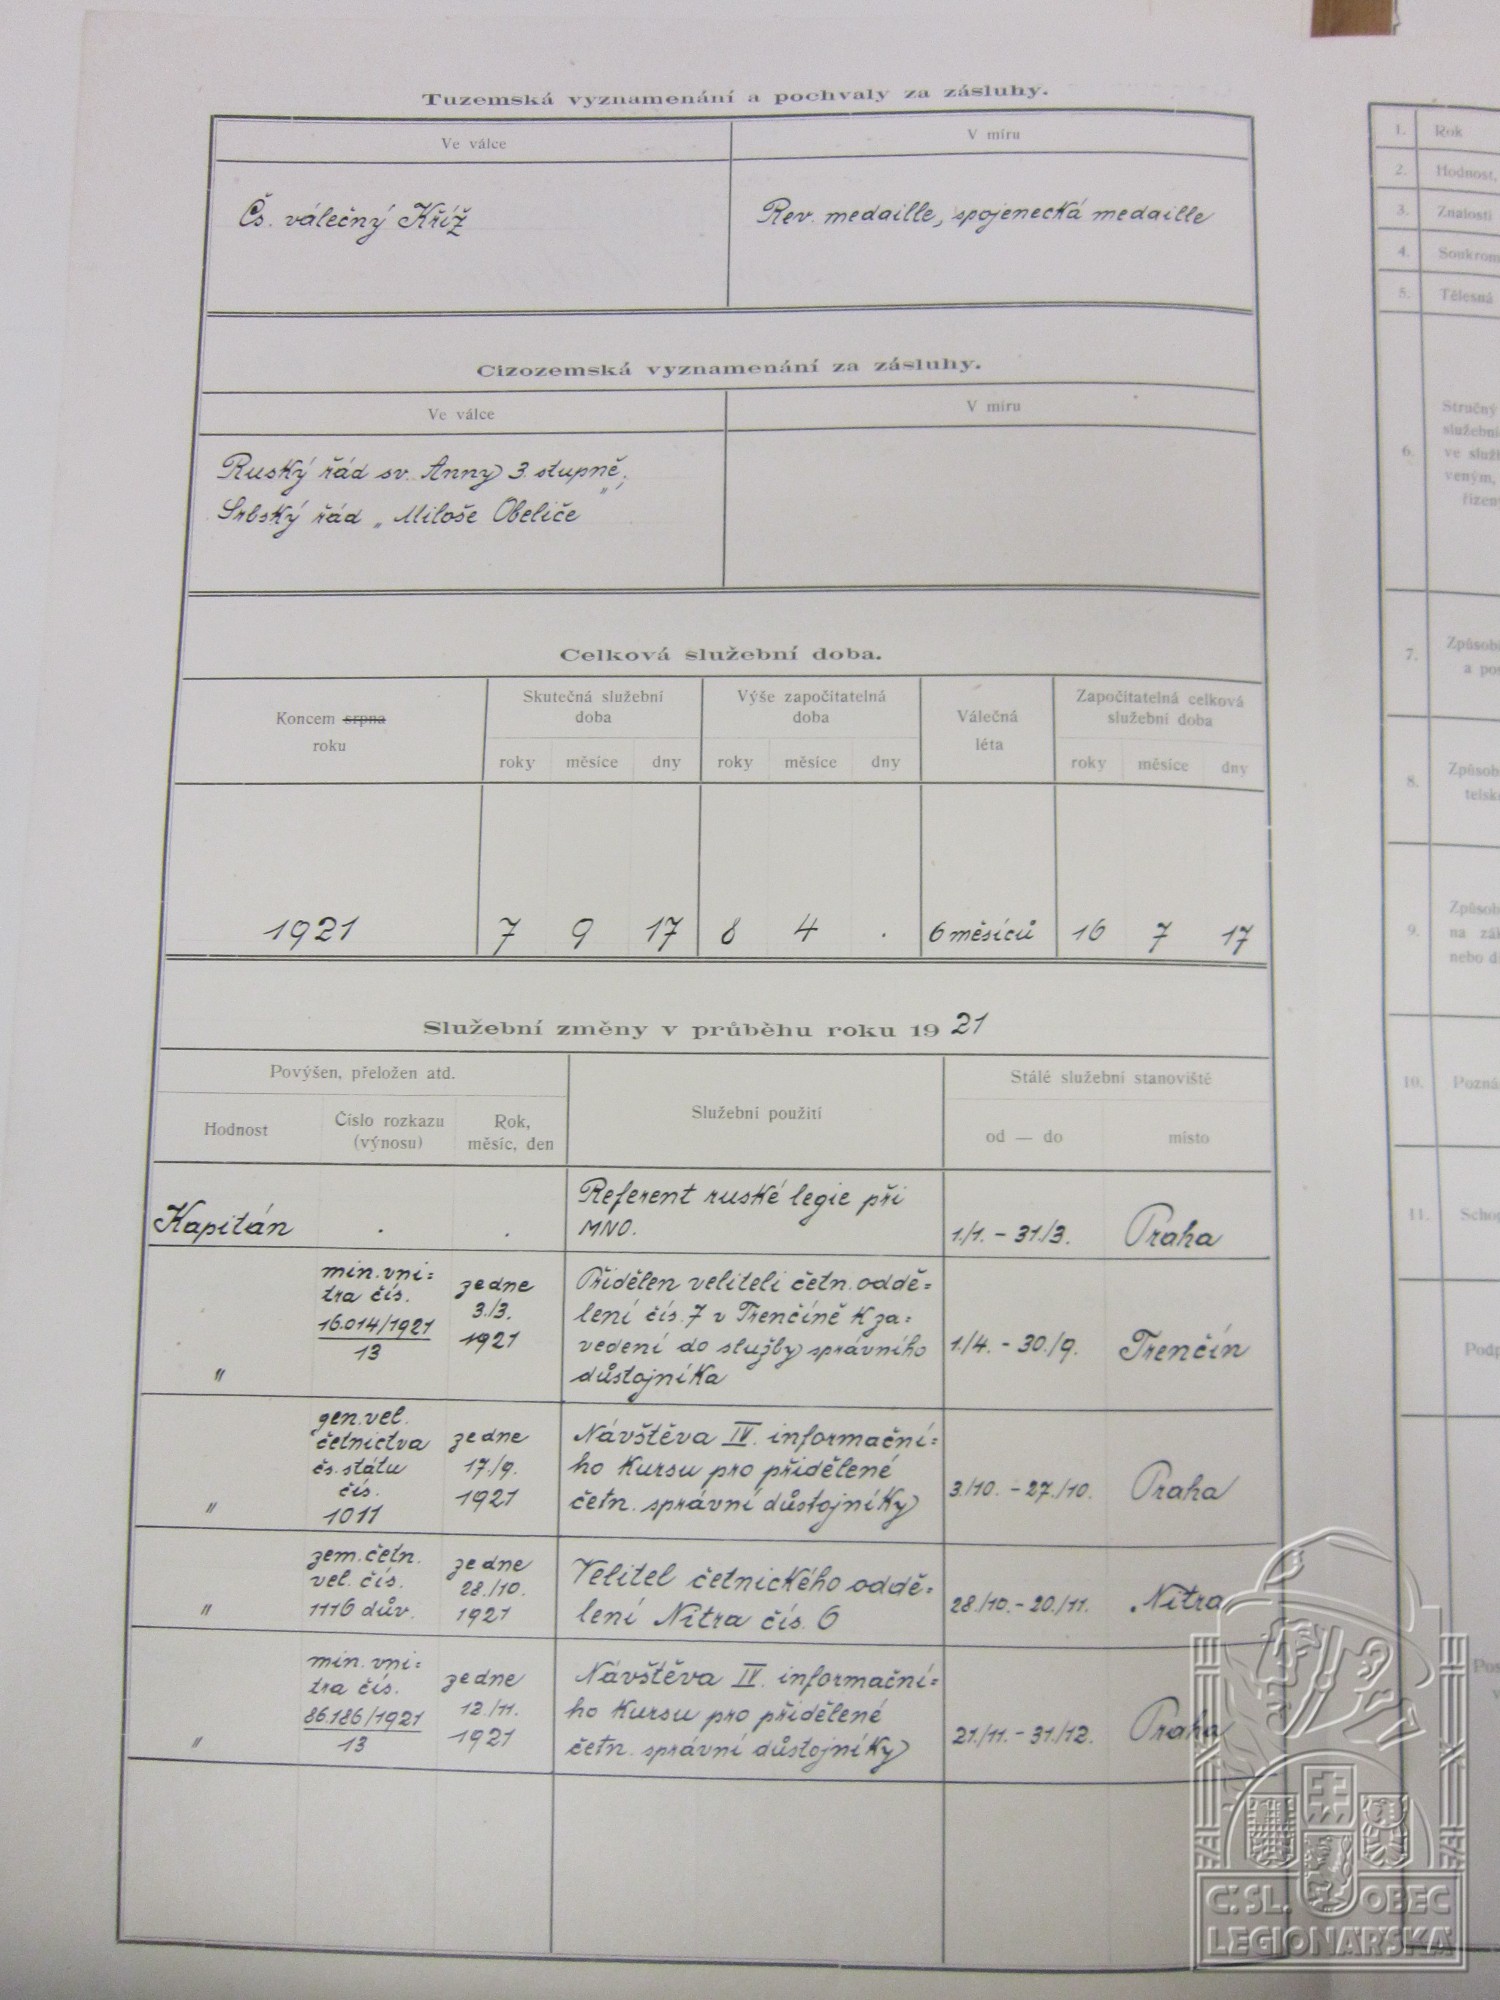 Tuzemská vyznamenání a pochvaly za zásluhy.
Ve válce
V míru
Čs. válečný Kříž
Rev. medaille, spojenecká medaille
Cizozemská vyznamenání za zásluhy.
Ve válce
V míru
Ruský řád sv. Anny 3. stupně,
Srbský řád „Miloše Obeliče"
Celková služební doba.
Koncem srpna
roku
Skutečná služební
doba
Výše započítatelná
doba
Válečná
léta
Započítatelná celková
služební doba
roky měsíce dny
roky měsíce dny
roky měsíce dny
1921 7 9 17 8 4 . 6 měsíců 16 7 17
Služební změny v průběhu roku 19 21
Povýšen, přeložen atd.
Služební použití
Stálé služební stanoviště
Hodnost
Číslo rozkazu
(výnosu)
Rok,
měsíc, den
od — do
místo
Kapitán
.
.
Referent ruské legie při
MNO.
1./1. - 31./3.
Praha
"
min. vni=
tra čís.
16.014/1921
13
ze dne
3./3.
1921
Přidělen veliteli četn. oddě=
lení čís. 7 v Trenčíně k za=
vedení do služby správního
důstojníka
1./4. - 30./9.
Trenčín
"
gen. vel.
četnictva
čs. státu
čís.
1011
ze dne
17./9.
1921
Návštěva IV. informační=
ho kursu pro přidělené
četn. správní důstojníky
3./10. - 27./10.
Praha
"
zem. četn.
vel. čís.
1116 dův.
ze dne
28./10.
1921
Velitel četnického oddě=
lení Nitra čís. 6
28./10. - 20./11.
Nitra
"
min. vni=
tra čís.
86.186/1921
13
ze dne
12./11.
1921
Návštěva IV. informační=
ho kursu pro přidělené
četn. správní důstojníky
21./11. - 31./12.
Praha
1. Rok
2. Hodnost,
3. Znalosti
4. Soukrom
5. Tělesná
6.
Stručný
služební
ve služ
veným,
řízen
7. Způsob
a po
8. Způsob
telsk
9.
Způsob
na zák
nebo d
10. Pozná
11. Schop
Podp
Pos
v
Č.SL. OBEC
LEGIONÁŘSKÁ